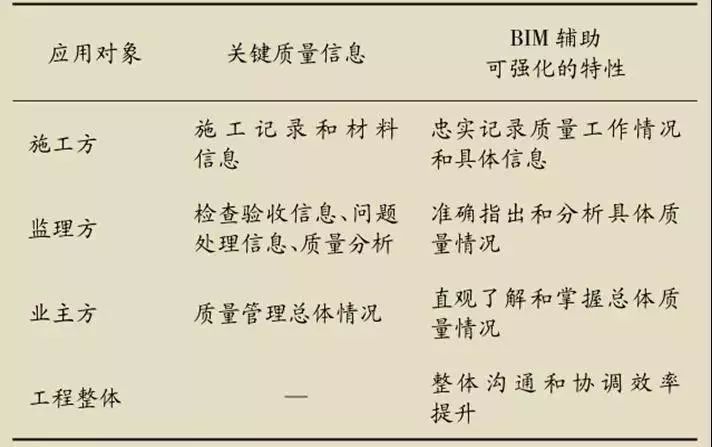 应用对象
关键质量信息
BIM 辅助
可强化的特性
施工方
施工记录和材料
信息
忠实记录质量工作情况
和具体信息
监理方
检查验收信息、问题
处理信息、质量分析
准确指出和分析具体质
量情况
业主方
质量管理总体情况
直观了解和掌握总体质
量情况
工程整体
—
整体沟通和协调效率
提升